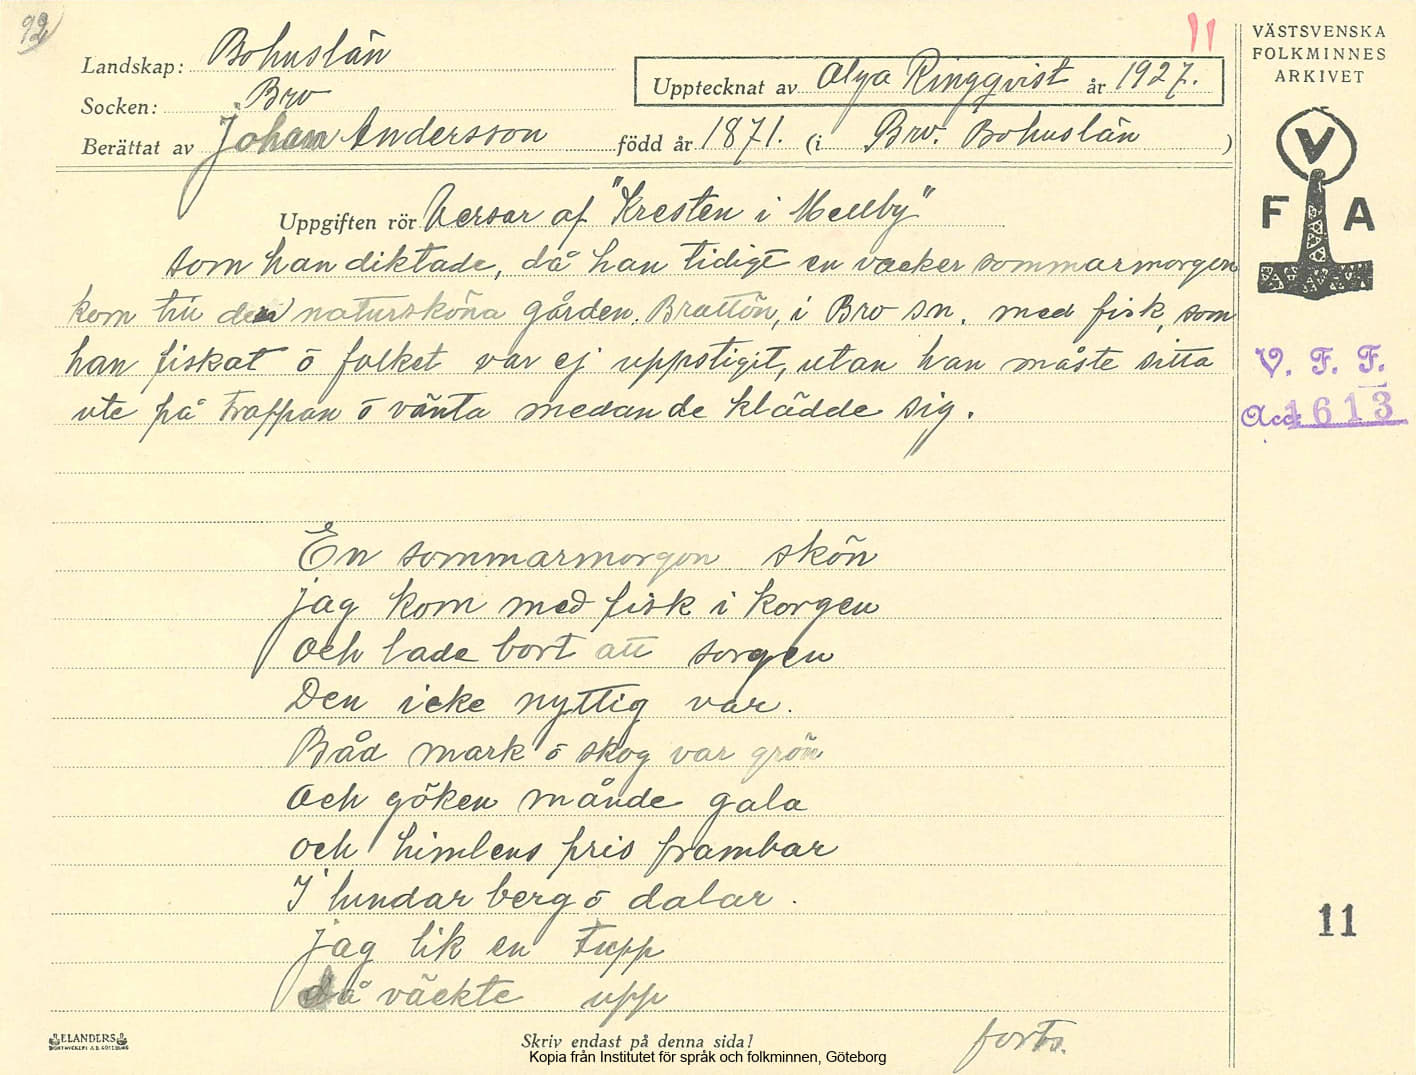 92
11
VÄSTSVENSKA
FOLKMINNES
ARKIVET
Landskap: Bohuslän
Upptecknat av Olga Ringqvist år 1927.
Socken: Bro
Berättat av Johan Andersson född år 1871. (i Bro. Bohuslän )
V
F A
Uppgiften rör Verser af "Kresten i Mellby"
som han diktade, då han tidigt en vacker sommarmorgen
kom till den natursköna gården. Brattön, i Bro sn. med fisk, som
han fiskat ō folket var ej uppstigit, utan han måste sitta
ute på trappan ō vänta medan de klädde sig.
V. F. F.
Acc: 1613
En sommarmorgon skön
jag kom med fisk i korgen
och lade bort all sorgen
Den icke nyttig var.
Båd mark ō skog var grön
Och göken månde gala
och himlens pris frambar
I lundar berg ō dalar.
jag lik en tupp
då väckte upp
11
ELANDERS
BOKTRYCKERI A.B. GÖTEBORG
Skriv endast på denna sida!
forts.
Kopia från Institutet för språk och folkminnen, Göteborg